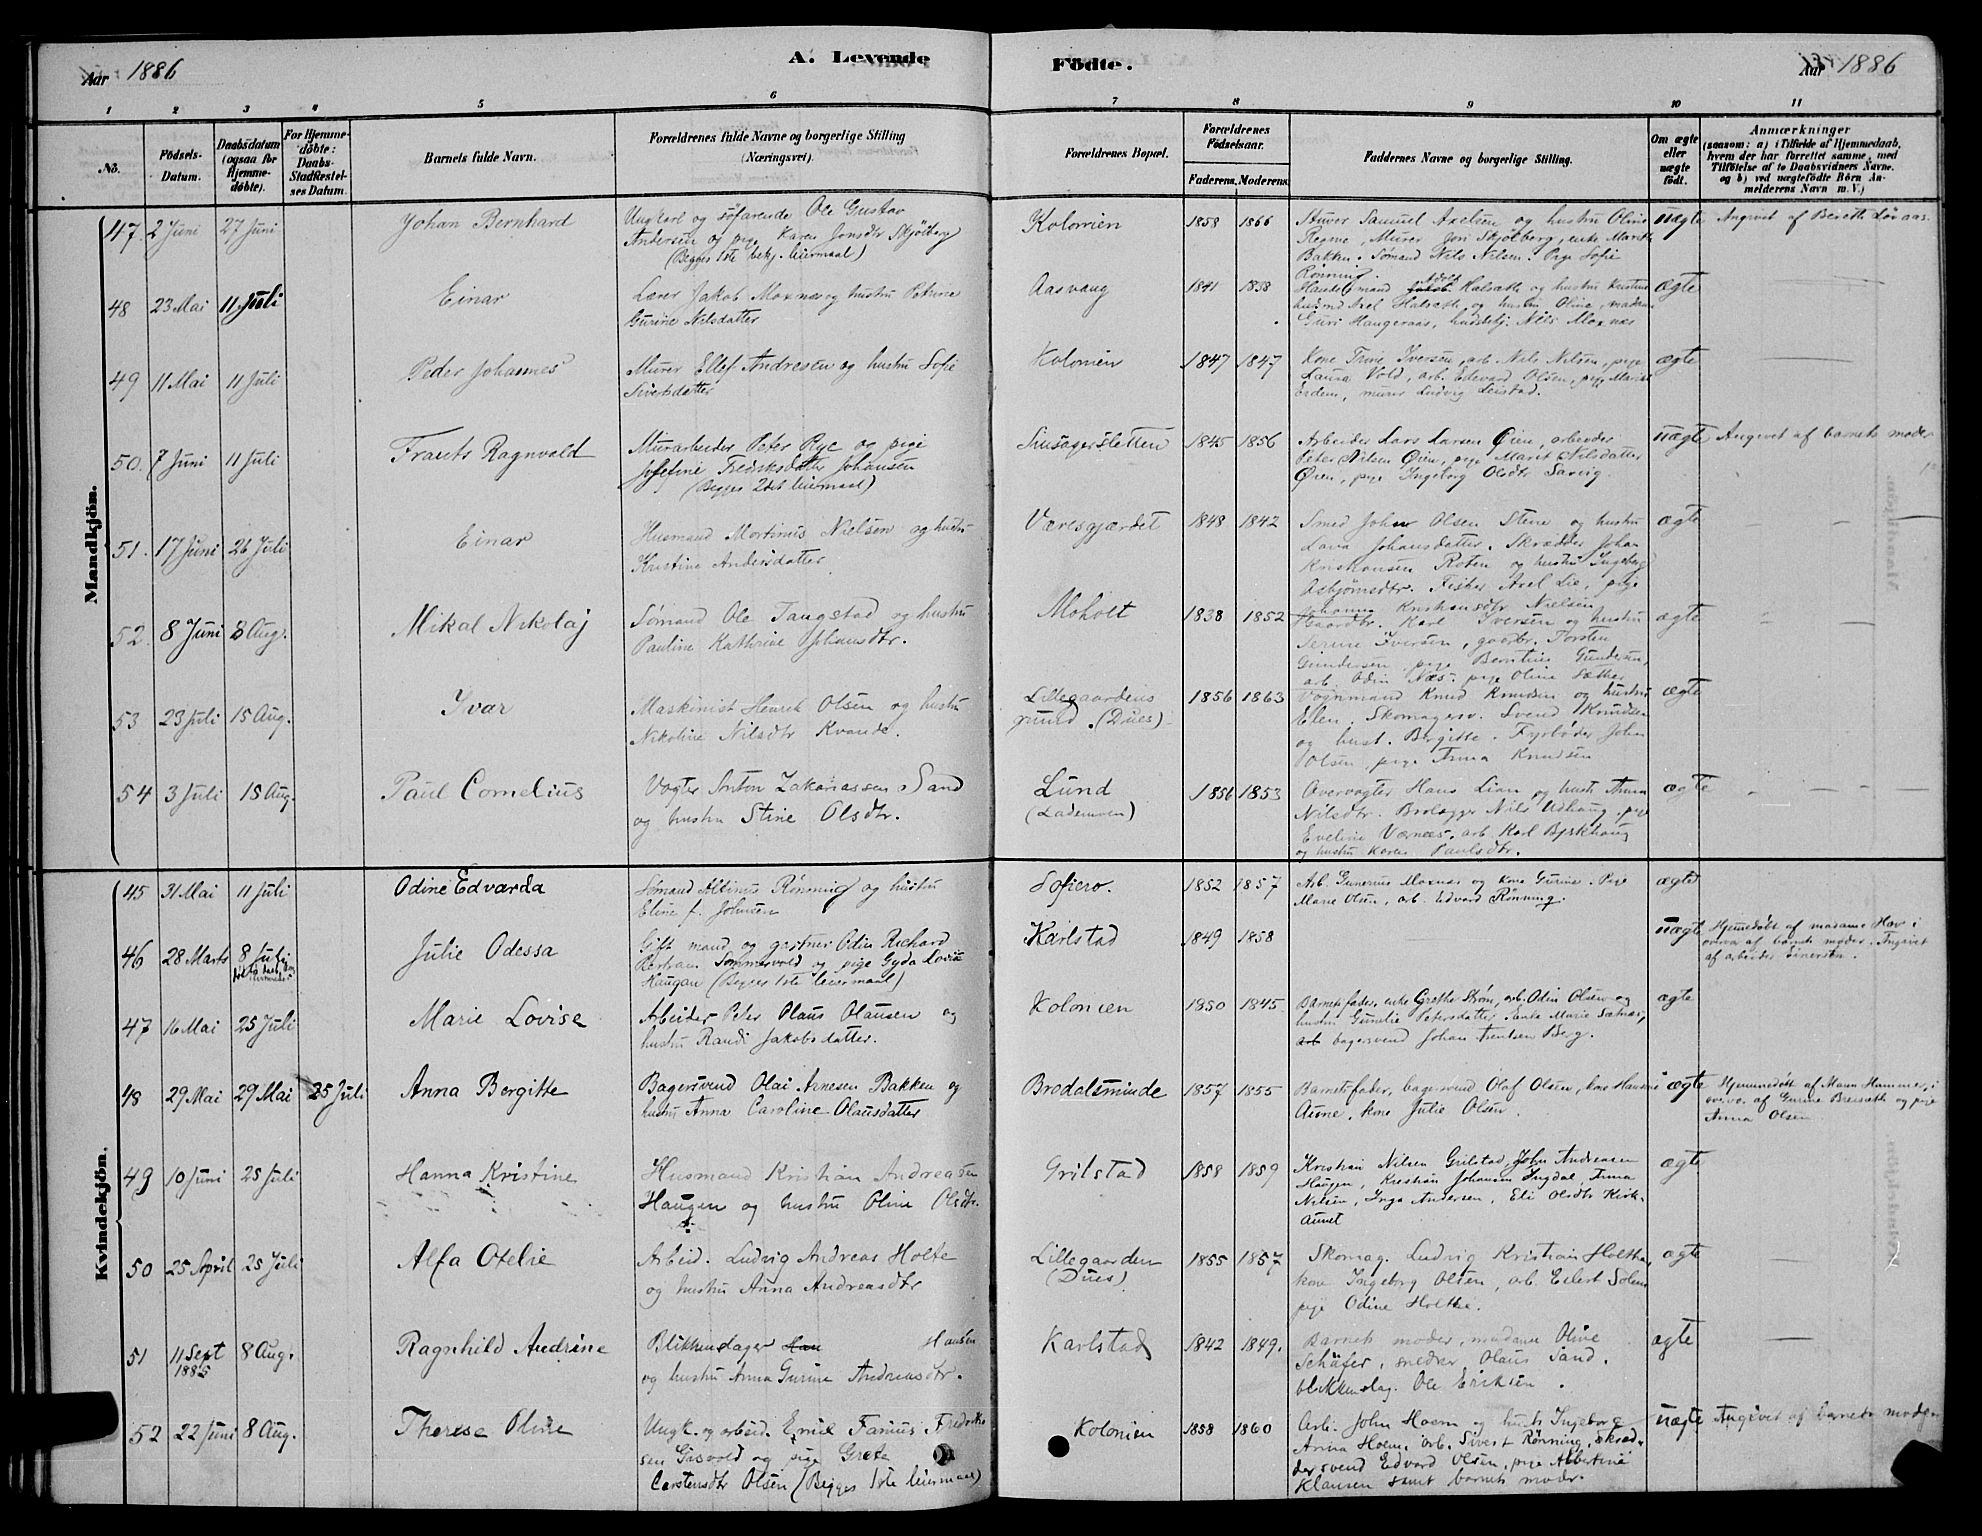 Aar 1886
A. Levende
Födte.
Aar 1886
1 2 3 4 5 6 7 8 9 10 11
No.
Födsels-Datum.
Daabsdatum (ogsaa for Hjemme-döbte).
For Hjemme-döbte: Daabs-Stadfæstel-ses Datum.
Barnets fulde Navn.
Forældrenes fulde Navne og borgerlige Stilling (Næringsvei).
Forældrenes Bopæl.
Forældrenes Födselsaar.
Faderens. Moderens.
Faddernes Navne og borgerlige Stilling.
Om ægte eller uægte födt.
Anmærkninger
(saasom: a) i Tilfælde af Hjemmedaab,
hvem der har forrettet samme, med
Tilföielse af to Daabsvidners Navne,
og b) ved uægtefödte Börn An-
melderens Navn m. V.)
Mandkjön.
47. 2 Juni 27 Juni Johan Bernhard
Ungkarl og söfarende Ole Gustav
Andersen og pige Karen Jonsdtr Skjölberg
(Begges 1ste bekj. leiermaal)
Kolonien 1858 1866
Murer Samuel Axelsen og hustru Oline
Murer Jon Skjölberg, enke Marith
Bakken. Sömand Nils Nilsen. Pige Sofie
Rönning.
uægte Angivet af Bereth Løvaas.
48 23 Mai 11 Juli Einar
Lærer Jakob Moxnes og hustru Petrine
Gurine Nilsdatter
Aasvang 1841 1858
og hustru Oline, madame
Guri Haugeraas, Nils Moxnes
ægte
49 11 Mai 11 Juli Peder Johannes
Murer Ellef Andresen og hustru Sofie
Sivertsdatter
Kolonien 1847 1847
Kone Trine Iversen, arb. Nils Nilsen, pige
Laura Vold, arb. Edevard Olsen, pige Marie
murer Ludvig Leistad.
ægte
50. 7 Juni 11 Juli Frants Ragnvald
Murarbeider Peter Rye og pige
Josefine Fredriksdatter Johansen
(Begges 2det leiermaal)
1845 1856
Arbeider Lars Larsen Øien, arbeider
Peter Nilsen Øien, pige Marit Nilsdatter
Øien, pige Ingeborg Olsdtr Sarvig.
uægte Angivet af barnets moder
51. 17 Juni 26 Juli Einar
Husmand Martinus Nielsen og hustru
Kristine Andersdatter
Væresgjærdet 1848 1842
Smed Johan Olsen Stene og hustru
Lava Johansdatter. Skrædder Johan
Kristiansen Roten og hustru Ingeborg
Asbjörnsdtr. Fisker Axel Lie, pige
Johanna Kristiansdtr Nielsen
ægte
52. 8 Juni 8 Aug. Mikal Nikolaj
Sømand Ole Taugstad og hustru
Pauline Kathrine Johansdtr.
Moholt 1838 1852
Gaardbr. Karl Iversen og hustru
Serine Iversen, gaardbr. Torsten
Gundersen, pige Berntine Gundersen,
arb. Odin Næs. pige Oline Sæther
ægte
53 23 Juli 15 Aug. Ivar
Maskinist Henrik Olsen og hustru
Nikoline Nilsdtr Kvande.
Lillegaardens
grund. (Dues)
1856 1863
Vognmand Knud Knudsen og hustru
Elen. Skomagersv. Svend Knudsen
og hust. Bergitte. Fyrbøder Johan
Olsen, pige Anna Knudsen
ægte
54 3 Juli 15 Aug. Paul Cornelius
Vogter Anton Zakariassen Sand
og hustru Stine Olsdtr.
Lund
(Lademoen)
1856 1853
Overvogter Hans Lian og hust. Anna
Nilsdtr. Brolægger Nils Udhaug, pige
Eveline Værnæs. arb. Karl Byskhaug
og hustru Karen Paulsdtr.
ægte
Kvindekjön.
45 31 Mai 11 Juli Odine Edvarda
Sømand Albinus Rønning og hustru
Eline f. Johnsen
Sofiero. 1852 1857
Arb. Gunerius Moxnæs og kone Gurine. Pige
Marie Olsen, arb. Edvard Rønning.
ægte
46 28 Marts 8 Juli Julie Odessa
Gift mand og gartner Odin Richard
Bertram Sommervold og pige Gyda Lovise
Haugan (Begges 1ste leiermaal)
Karlstad 1849 1858
uægte Hjemmedøbt af madame Hov i
overv. af barnets moder. Angivet
af arbeider Einersen.
47 16 Mai 25 Juli Marie Lovise
Arbeider Peter Olaus Olausen og
hustru Randi Jakobsdatter.
Kolonien 1850 1845
Barnets fader, enke Grethe Strøm, arb. Odin Olsen og
hustru Gunelie Petersdatter, Enke Marie Sætnæs,
arb bagersvend Johan Frentsen Berg.
ægte
48 29 Mai 29 Mai 25 Juli Anna Bergitte
Bagersvend Olai Arnesen Bakken og
hustru Anna Caroline Olausdatter
Brodalsminde 1857 1855
Barnets fader, bagersvend Olaf Olsen, kone Hansine
Aune, kone Julie Olsen.
ægte Hjemmedöbt af Mann Hammer, i
overv. af Gurine Breisæth og pige
Anna Olsen
49 10 Juni 25 Juli Hanna Kristine
Husmand Kristian Andreasen
Haugen og hustru Oline Olsdtr.
Grilstad 1858 1859
Kristian Nilsen Grilstad, John Andreasen
Haugen, Kristian Johansen Ingdal, Anna
Nilsen, Inga Andersen, Eli Olsdtr Kirk-
aunet
ægte
50 25 April 25 Juli Alfa Otelie
Arbeid. Ludvig Andreas Holte
og hustru Anna Andreasdtr
Lillegaarden
(Dues)
1855 1857
Skomag. Ludvig Kristian Holthe,
kone Ingeborg Olsen, arb. Eilert Solem
pige Odine Holthe.
ægte
51 11 Sept 1885 8 Aug. Ragnhild Andrine
Blikkenslager Han Hansen
og hustru Anna Gurine Andreasdtr.
Karlstad 1842 1849.
Barnets moder, madame Olive
Schäfer, snedker Olaus Sand,
blikkenslag. Ole Eriksen.
ægte
52 22 Juni 8 Aug. Therese Oline
Ungk. og arbeid. Emil Fanius Fredrik-
sen Gisvold og pige Grete
Carstensdtr Olsen (Begges 1ste leiermaal)
Kolonien 1858 1860
Arb. John Hoem og hust. Ingeborg
Anna Hoem, arb. Sivert Rønning, skræd-
dersvend Edvard Olsen, pige Albertine
Klausen samt barnets moder.
uægte Angivet af barnets moder